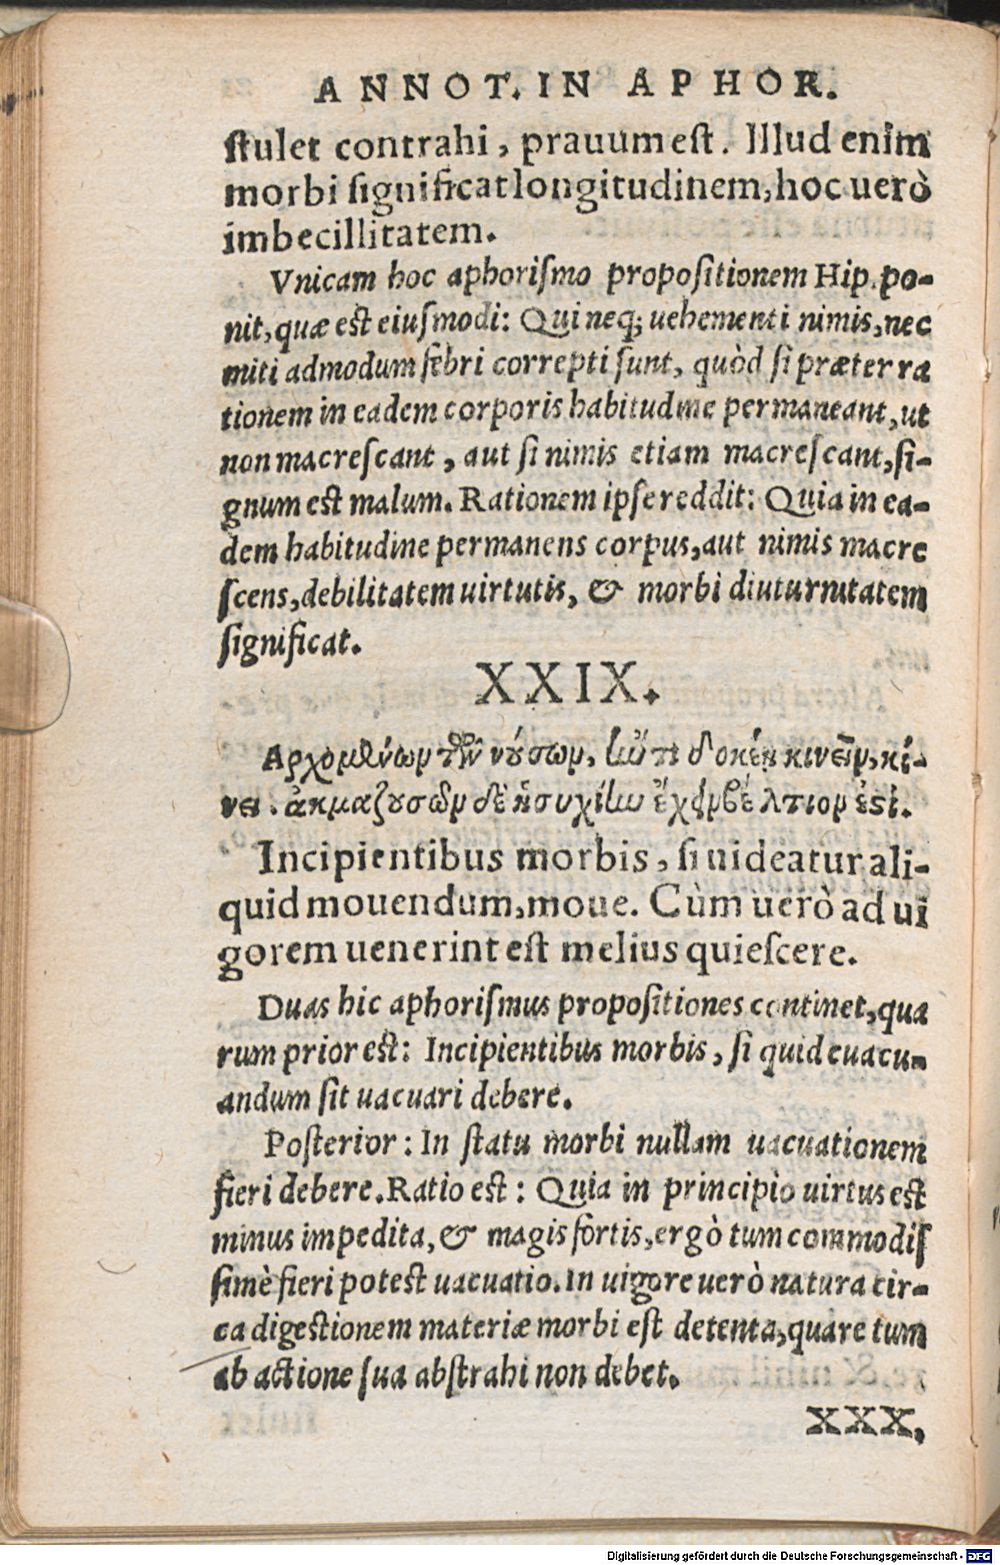 ANNOT. IN APHOR.
ſtulet contrahi, prauum eſt. Illud enim
morbi ſignificat longitudinem, hoc uerò
imbecillitatem.
Vnicam hoc aphoriſmo propoſitionem Hip. po-
nit, quæ eſt eiuſmodi: Qui neq; uehementi nimis, nec
miti admodum febri correpti ſunt, quòd ſi præter ra
tionem in eadem corporis habitudine permaneant, ut
non macreſcant, aut ſi nimis etiam macreſcant, ſi-
gnum eſt malum. Rationem ipſe reddit: Quia in ea-
dem habitudine permanens corpus, aut nimis macre
ſcens, debilitatem uirtutis, & morbi diuturnitatem
ſignificat.
XXIX.
Αρχομένων τῶν νούσων, ἢν τι δοκέῃ κινεῖν, κί-
νει. ἀκμαζουσῶν δὲ ἡσυχίην ἔχειν βέλτιον ἐστί.
Incipientibus morbis, ſi uideatur ali-
quid mouendum, moue. Cùm uerò ad ui
gorem uenerint eſt melius quieſcere.
Duas hic aphoriſmus propoſitiones continet, qua
rum prior eſt: Incipientibus morbis, ſi quid euacu-
andum ſit uacuari debere.
Poſterior: In ſtatu morbi nullam uacuationem
fieri debere. Ratio eſt: Quia in principio uirtus eſt
minus impedita, & magis fortis, ergò tum commodiſ
ſimè fieri poteſt uacuatio. In uigore uerò natura cir-
ca digeſtionem materiæ morbi eſt detenta, quare tum
ab actione ſua abſtrahi non debet.
XXX.
Digitalisierung gefördert durch die Deutsche Forschungsgemeinschaft - DFG